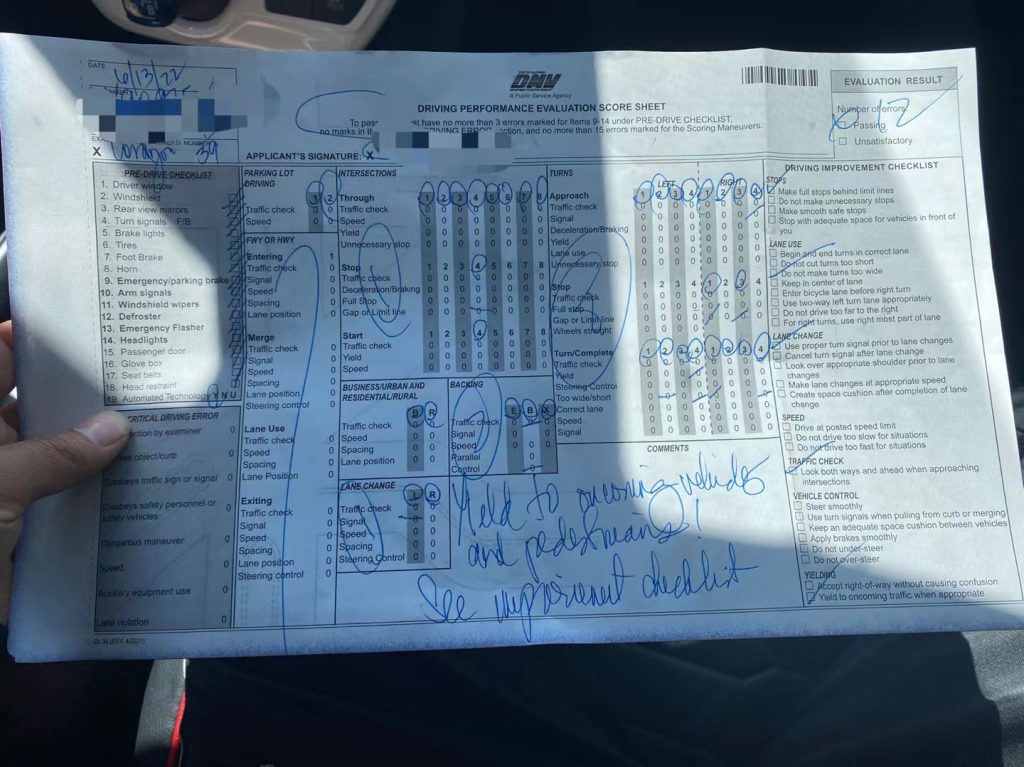 DATE
6/13/22
DMV
A Public Service Agency
DRIVING PERFORMANCE EVALUATION SCORE SHEET
To pass have no more than 3 errors marked for Items 9-14 under PRE-DRIVE CHECKLIST,
no marks in th DRIVING ERROR ction, and no more than 15 errors marked for the Scoring Maneuvers.
EVALUATION RESULT
Number of errors
12
Passing
Unsatisfactory
X
39
APPLICANT'S SIGNATURE: X
PRE-DRIVE CHECKLIST
1. Driver window
2. Windshield
3. Rear view mirrors
4. Turn signals F/B
5. Brake lights
6. Tires
7. Foot Brake
8. Horn
9. Emergency/parking brake
10. Arm signals
11. Windshield wipers
12. Defroster
13. Emergency Flasher
14. Headlights
15. Passenger door
16. Glove box
17. Seat belts
18. Head restraint
19. Automated Technology Y N U
CRITICAL DRIVING ERROR
ention by examiner 0
kes object/curb 0
Disobeys traffic sign or signal 0
Disobeys safety personnel or
safety vehicles 0
Dangerous maneuver 0
Speed 0
Auxiliary equipment use 0
Lane violation 0
DL 32 (REV. 4/2021)
PARKING LOT
DRIVING 1 2
Traffic check 0 0
Speed 0 0
FWY OR HWY
Entering 1
Traffic check 0
Signal 0
Speed 0
Spacing 0
Lane position 0
Merge
Traffic check 0
Signal 0
Speed 0
Spacing 0
Lane position 0
Steering control 0
Lane Use
Traffic check 0
Speed 0
Spacing 0
Lane Position 0
Exiting
Traffic check 0
Signal 0
Speed 0
Spacing 0
Lane position 0
Steering control 0
INTERSECTIONS
Through 1 2 3 4 5 6 7 8
Traffic check 0 0 0 0 0 0 0 0
Speed 0 0 0 0 0 0 0 0
Yield 0 0 0 0 0 0 0 0
Unnecessary stop 0 0 0 0 0 0 0 0
Stop 1 2 3 4 5 6 7 8
Traffic check 0 0 0 0 0 0 0 0
Deceleration/Braking 0 0 0 0 0 0 0 0
Full Stop 0 0 0 0 0 0 0 0
Gap or Limit line 0 0 0 0 0 0 0 0
Start 1 2 3 4 5 6 7 8
Traffic check 0 0 0 0 0 0 0 0
Yield 0 0 0 0 0 0 0 0
Speed 0 0 0 0 0 0 0 0
BUSINESS/URBAN AND
RESIDENTIAL/RURAL
B R
Traffic check 0 0
Speed 0 0
Spacing 0 0
Lane position 0 0
BACKING
E B X
Traffic check 0 0 0
Signal 0 0 0
Speed 0 0 0
Parallel 0
Control 0
LANE CHANGE
L R
Traffic check 0 0
Signal 0 0
Speed 0 0
Spacing 0 0
Steering Control 0 0
TURNS
LEFT RIGHT
Approach 1 2 3 4 1 2 3 4
Traffic check
Signal
Deceleration/Braking
Yield
Lane use
Unnecessary stop
Stop 1 2 3 4 1 2 3 4
Traffic check
Full stop
Gap or Limit line
Wheels straight
Turn/Complete 1 2 3 4 1 2 3 4
Traffic check
Yield
Steering Control
Too wide/short
Correct lane
Speed
Signal
COMMENTS
Yield to oncoming vehicles
and pedestrians!
See improvement checklist
DRIVING IMPROVEMENT CHECKLIST
STOPS
Make full stops behind limit lines
Do not make unnecessary stops
Make smooth safe stops
Stop with adequate space for vehicles in front of
you
LANE USE
Begin and end turns in correct lane
Do not cut turns too short
Do not make turns too wide
Keep in center of lane
Enter bicycle lane before right turn
Use two-way left turn lane appropriately
Do not drive too far to the right
For right turns, use right most part of lane
LANE CHANGE
Use proper turn signal prior to lane changes
Cancel turn signal after lane change
Look over appropriate shoulder prior to lane
changes
Make lane changes at appropriate speed
Create space cushion after completion of lane
change
SPEED
Drive at posted speed limit
Do not drive too slow for situations
Do not drive too fast for situations
TRAFFIC CHECK
Look both ways and ahead when approaching
intersections
VEHICLE CONTROL
Steer smoothly
Use turn signals when pulling from curb or merging
Keep an adequate space cushion between vehicles
Apply brakes smoothly
Do not under-steer
Do not over-steer
YIELDING
Accept right-of-way without causing confusion
Yield to oncoming traffic when appropriate